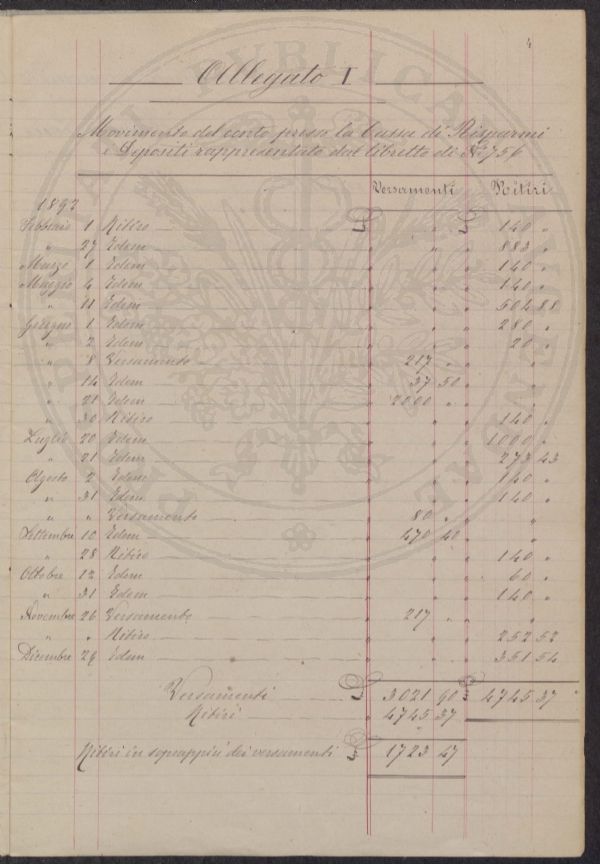 4
Allegato I
Movimento del conto presso la Cassa di Risparmi
e Depositi rappresentato dal libretto di N.° 756
Versamenti Ritiri
1892
Febbraio 1 Ritiro £ " " £ 140 "
" 27 Edem " " " 883 "
Marzo 1 Edem " " " 140 "
Maggio 4 Edem " " " 140 "
" 11 Edem " " " 504 88
Giugno 1 Edem " " " 280 "
" 2 Edem " " " 20 "
" 8 Versamento " 217 " " " "
" 14 Edem " 37 50 " " "
" 21 Edem " 2000 " " " "
" 30 Ritiro " " " 140 "
Luglio 20 Edem " " " 1000 "
" 21 Edem " " " 273 43
Agosto 2 Edem " " " 140 "
" 31 Edem " " " 140 "
" " Versamento " 80 " " " "
Settembre 10 Edem " 470 40 " " "
" 28 Ritiro " " " 140 "
Ottobre 12 Edem " " " 60 "
" 31 Edem " " " 140 "
Novembre 26 Versamento " 217 " " " "
" " Ritiro " " " 252 52
Dicembre 29 Edem " " " 351 54
Versamenti £ 3021 90 £ 4745 37
Ritiri " 4745 37
Ritiri in soprappiù dei versamenti £ 1723 47